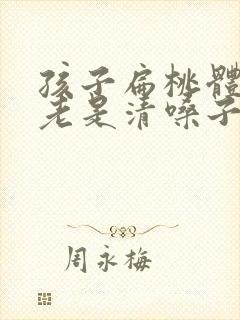 孩子扁桃體
老是清嗓子
周永梅